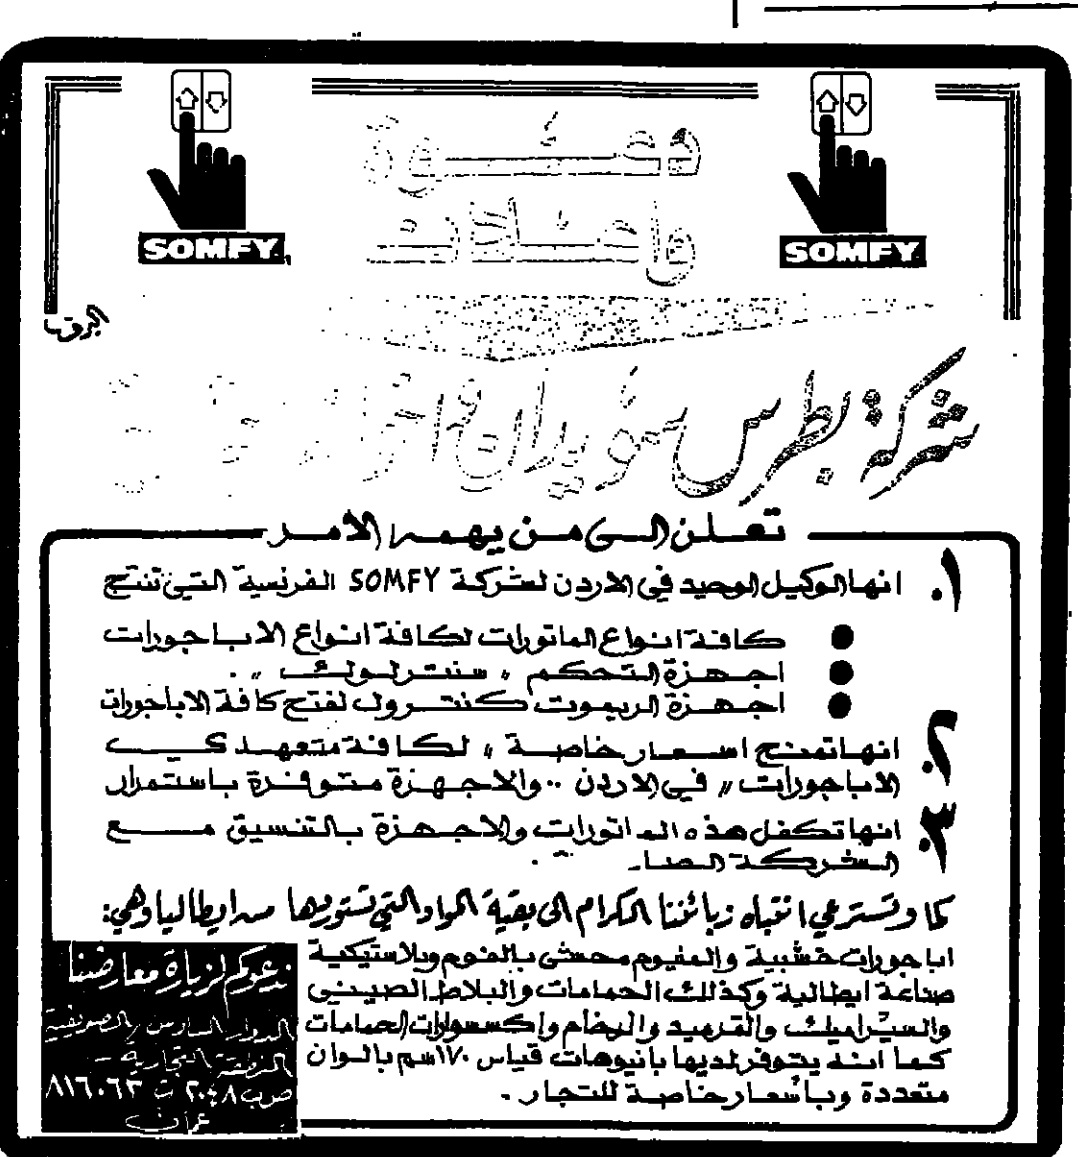 SOMFY
SOMFY
دعوة
واعلان
البرق
شركة بطرس سويدان واخوانه
تعلن الى من يهمه الامر
١. انها الوكيل الوحيد في الاردن لشركة SOMFY الفرنسية التي تنتج
● كافة انواع الماتورات لكافة انواع الاباجورات
● اجهزة التحكم " سنترلوك " .
● اجهزة الريموت كنترول لفتح كافة الاباجورات
٢. انها تمنح اسعار خاصة " لكافة متعهدي
الاباجورات " في الاردن .. والاجهزة متوفرة باستمرار
٣. انها تكفل هذه الماتورات والاجهزة بالتنسيق مع
الشركة الصانعة.
كما وتسترعي انتباه زبائننا الكرام الى بقية المواد التي تستوردها من ايطاليا وهي:
اباجورات خشبية والمنيوم محشي بالفوم وبلاستيكية
صناعة ايطالية وكذلك الحمامات والبلاط الصيني
والسيراميك والقرميد والرخام واكسسوارات الحمامات
كما انه يتوفر لديها بانيوهات قياس ١٧٠سم بالوان
متعددة وبأسعار خاصة للتجار .
ندعوكم لزيارة معارضنا
الدوار السادس / الصويفية
المنطقة التجارية -
ص.ب ٢٠٤٨ ت ٨١٦٠٦٣
عمان